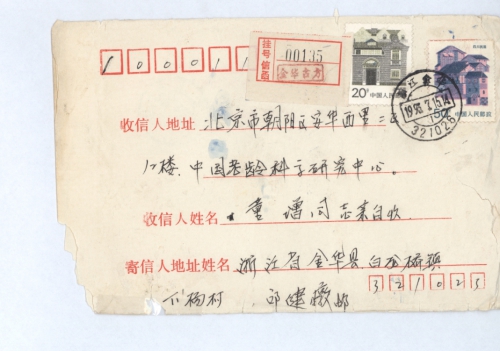 100011
挂号信函
00135
金华古方
20分 中国人民邮政
50分 中国人民邮政
浙江金华
321025
收信人地址 北京市朝阳区安华西里二区
楼 中国老龄科学研究中心。
收信人姓名 董 同志亲自收
寄信人地址姓名 浙江省金华县白龙桥镇
321025
下杨村 邱建 邮